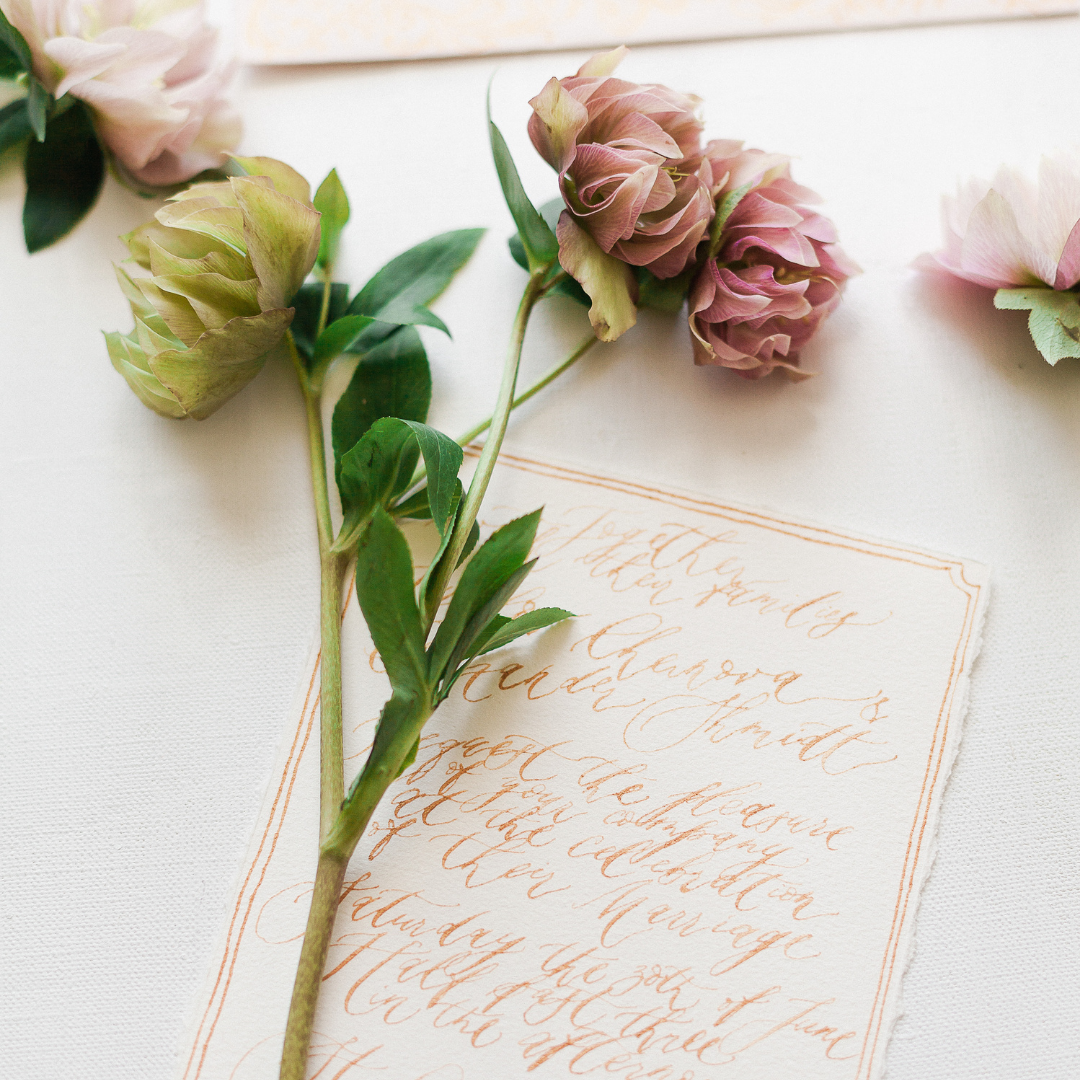 Together
their families
Chernova &
ander Shmidt
request the pleasure
of your company
at the celebration
of their Marriage
Saturday the 30th of June
Half past three
in the